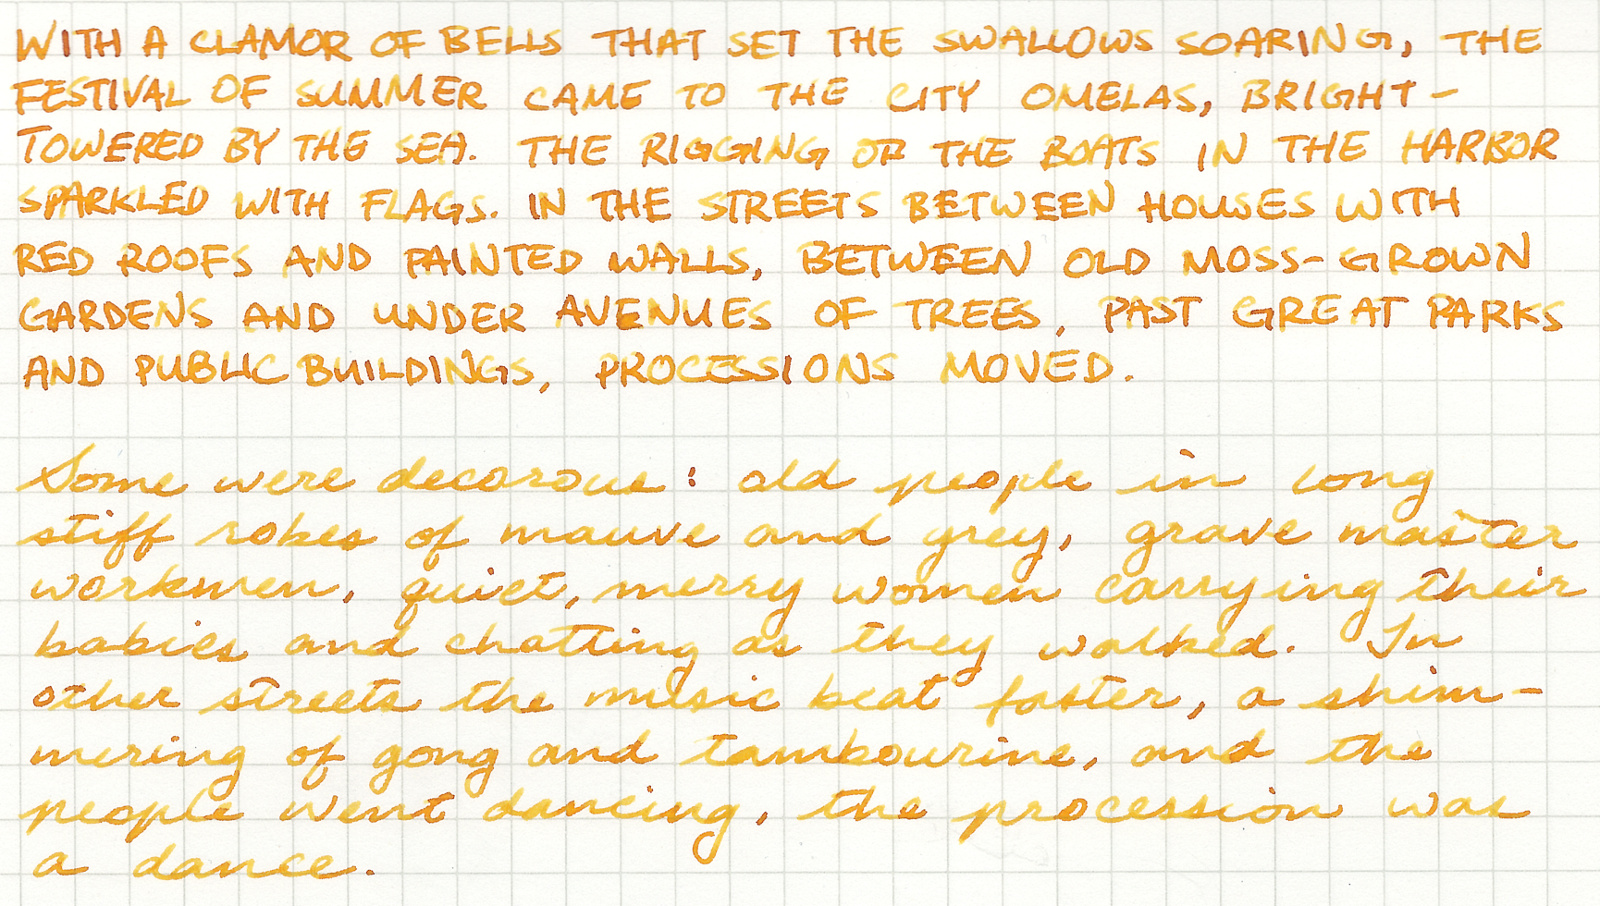 WITH A CLAMOR OF BELLS THAT SET THE SWALLOWS SOARING, THE
FESTIVAL OF SUMMER CAME TO THE CITY OMELAS, BRIGHT-
TOWERED BY THE SEA. THE RIGGING OF THE BOATS IN THE HARBOR
SPARKLED WITH FLAGS. IN THE STREETS BETWEEN HOUSES WITH
RED ROOFS AND PAINTED WALLS, BETWEEN OLD MOSS-GROWN
GARDENS AND UNDER AVENUES OF TREES, PAST GREAT PARKS
AND PUBLIC BUILDINGS, PROCESSIONS MOVED.
Some were decorous: old people in long
stiff robes of mauve and grey, grave master
workmen, quiet, merry women carrying their
babies and chatting as they walked. In
other streets the music beat faster, a shim-
mering of gong and tambourine, and the
people went dancing, the procession was
a dance.